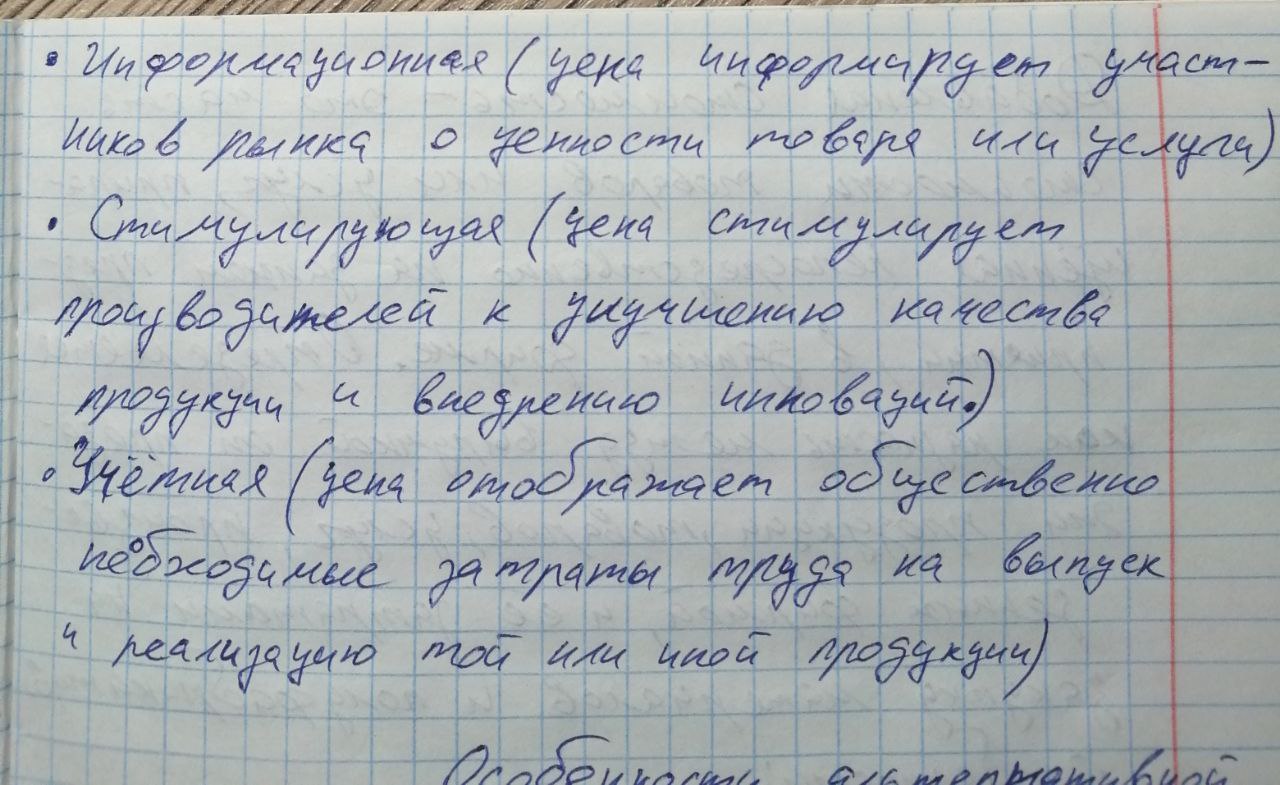 • Информационная (цена информирует участ-
ников рынка о ценности товара или услуги)
• Стимулирующая (цена стимулирует
производителей к улучшению качества
продукции и внедрению инноваций.)
• Учётная (цена отображает общественно
необходимые затраты труда на выпуск
и реализацию той или иной продукции)
Особенности альтернативной